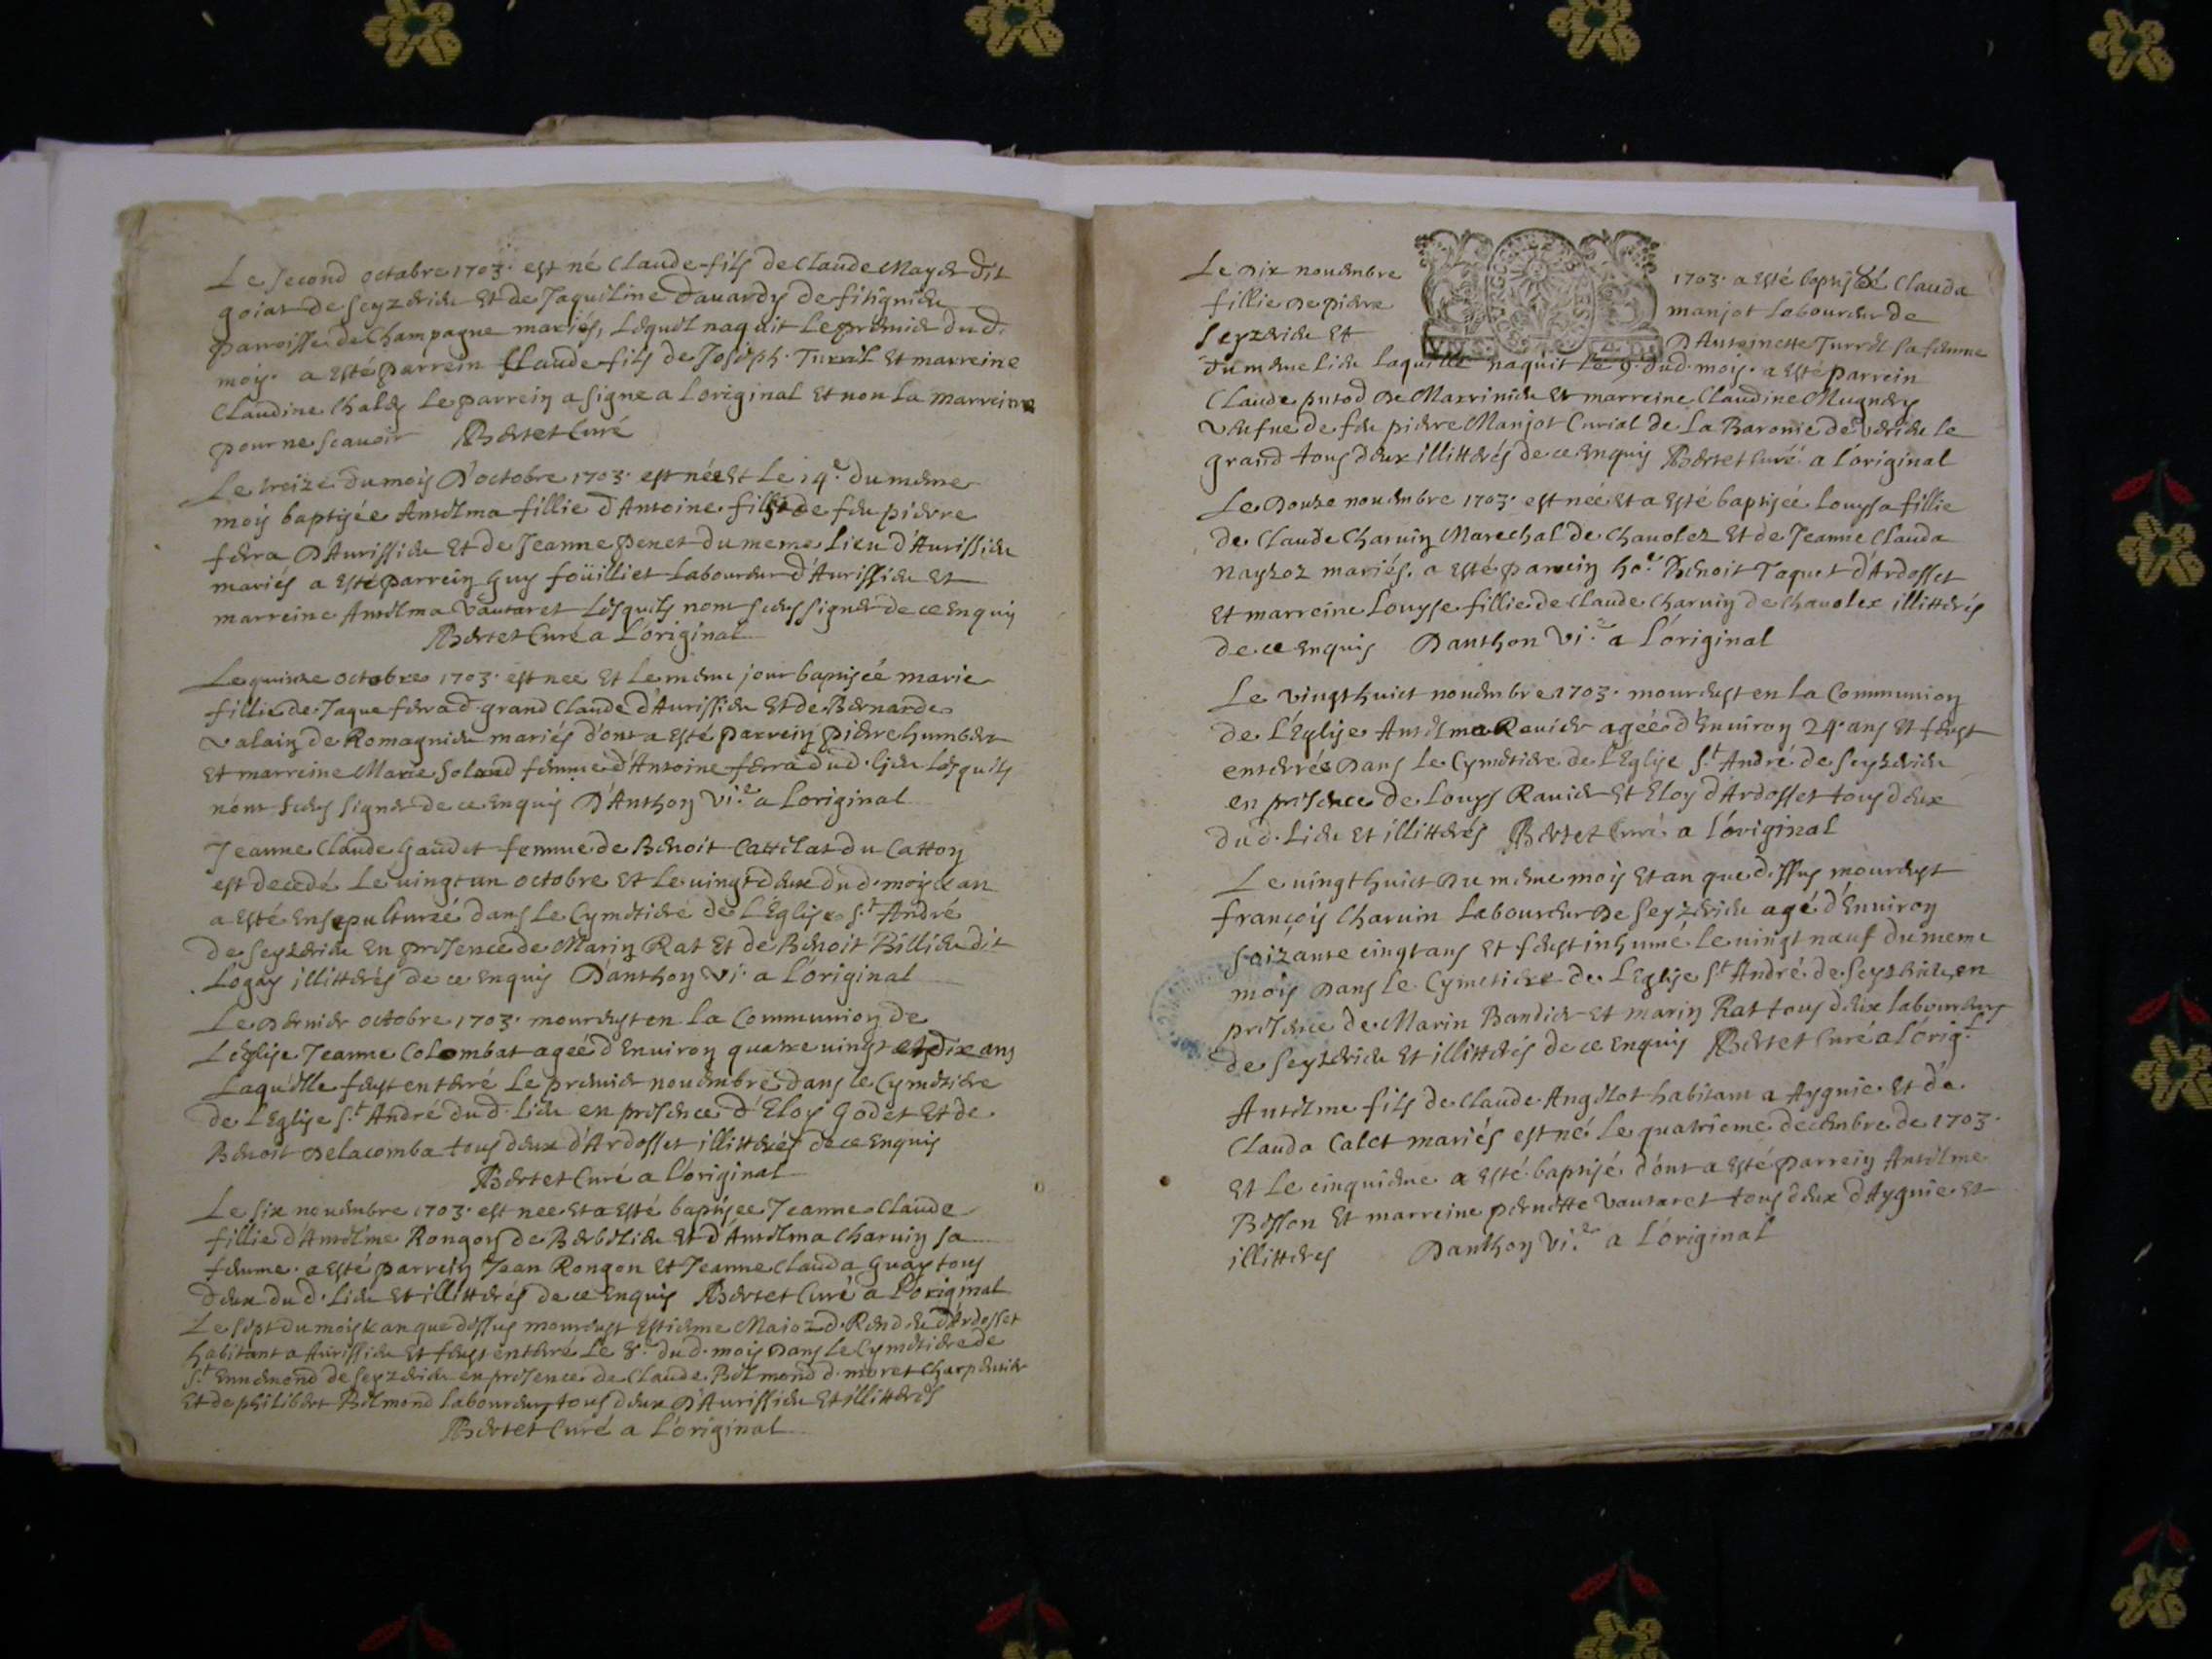 Le second octobre 1703. est né Claude fils de Claude Mayer dit
goiat de Seyzerieu et de Jaquiline Davardy de fitignieu
parroisse de Champagne mariés, lequel naquit le premier dud.
mois. a esté parrein Claude fils de Joseph Turrel et marreine
Claudine Chaley le parrein a signe a loriginal et non la marreine
pour ne scavoir Bertet Curé
Le treize du mois d'octobre 1703. est née et le 14e. du meme
mois baptisée Antelma fillie d'Antoine fils de feu pierre
ferra d'Aurissieu et de Jeanne penet du meme lieu d'Aurissieu
mariés a esté parrein Guy foüilliet laboureur d'Aurissieu et
marreine Antelma Vautaret lesquels nont sceus signer de ce enquis
Bertet Curé a l'original
Le quinze octobre 1703. est nee et le meme jour baptisée marie
fillie de Jaque ferra d. grand Claude d'Aurissieu et de Bernarde
valain de Romagnieu mariés d'ont a esté parrein pierre humbert
et marreine Marie Soland femme d'Antoine ferra dud. lieu lesquels
n'ont sceus signer de ce enquis D'Anthon Vi.re a loriginal
Jeanne Claude Gaudet femme de Benoit Cattelat du Catton
est decedé le vingt un octobre et le vingt deux dud. mois & an
a esté ensepulturée dans le Cymetiere de L'Eglise S.t André
de Seyzerieu en presence de Marin Rat et de Benoit Billieu dit
Logay illitterés de ce enquis D'anthon Vi. a l'original
Le dernier octobre 1703. mourust en la Communion de
L'eglise Jeanne Colombat ageé d'environ quatre vingt et dix ans
Laquelle feust enterré le premier novembre dans le Cymetiere
de L'Eglise S.t André dud. lieu en presence d'Eloy Godet et de
Benoit Delacomba tous deux d'Ardosset illitterés de ce enquis
Bertet Curé a l'original
Le six novembre 1703. est nee et a esté baptisee Jeanne Claude
fillie d'Antelme Rongon de Berbelieu et d'Antelma Charvin sa
femme. a esté parrein Jean Rongon et Jeanne Clauda Guay tous
deux dud. lieu et illitterés de ce enquis Bertet Curé a l'original
Le sept du mois & an que dessus mourust Estienne Maioz d. Rendu d'Ardosset
habitant a Aurissieu et feust enterré le 8.e dud. mois dans le Cymetiere de
S.t Ennemond de Seyzerieu en presence de Claude Belmond d. moret charpentier
et de philibert Belmond laboureur tous deux d'Aurissieu et illitterés
Bertet Curé a l'original
Le dix novembre 1703. a esté baptisée Clauda
fillie de pierre manjot laboureur de
Seyzerieu et d'Antoinette Turrel sa femme
du meme lieu laquelle naquit le 9. dud. mois. a esté parrein
Claude putod de Marrinieu et marreine Claudine Mugnery
veufue de feu pierre Manjot Curial de la Baronie de verieu le
grand tous deux illitterés de ce enquis Bertet Curé a l'original
Le douze novembre 1703. est née et a esté baptiseé Louysa fillie
de Claude Charvin Marechal de Chavolez et de Jeanne Clauda
Nayroz mariés. a esté parrein ho.e Benoit Jaquet d'Ardosset
et marreine Louyse fillie de Claude Charvin de Chavolex illitterés
de ce enquis Danthon Vi.re a l'original
Le vingt huict novembre 1703. mourust en la Communion
de L'Eglise Antelma Ravier ageé d'environ 24. ans et feust
enterrée dans le Cymetiere de L'Eglise S.t André de Seyzerieu
en presence de Louys Ravier et Eloy d'Ardosset tous deux
dud. lieu et illitterés Bertet Curé a l'original
Le vingt huict du meme mois et an que dessus mourust
françois Charvin laboureur de Seyzerieu agé d'environ
soizante cinqt ans et feust inhumé le vingt nœuf du meme
mois dans le Cymetiere de L'Eglise S.t André de Seyzerieu, en
presence de Marin Bandier et marin Rat tous deux laboureurs
de Seyzerieu et illitterés de ce enquis Bertet Curé a l'orig.l
Antelme fils de Claude Angelot habitant a Aygnie et de
Clauda Calet mariés est né le quatrieme decembre de 1703.
et le cinquieme a esté baptisé d'ont a esté parrein Antelme
Besson et marreine pernette Vautaret tous deux d'Aygnie et
illitteres Danthon Vi.re a l'original